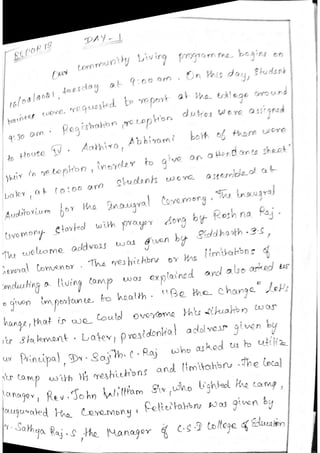 REPORTS
DAY - 1
Our community Living programme begins on
16/02/2021, tuesday at 9:00 am. On this day, Student
trainees were requested to report at the college around
9:30 am. Registration, reception duties were assigned
to House IV. Aathira, Abhirami both of them were
their in reception, inorder to give an attendance sheet
Later, at 10:00 am students were assembled at
Auditorium for the Inaugral Ceremony. The Inaugral
Ceremony started with prayer song by Roshna Raj.
The welcome address was given by Siddharth.S.S,
General Convenor. The restrictions or the limitations of
conducting a living camp was explained and also asked us
to given importance to health. "Be the change" let's
change, that is we could overcome this situation was
his statement. Later, presidential address given by
our Principal, Dr. Sajith.C.Raj who asked us to utilize
this camp with its restrictions and limitations. The Local
Manager, Rev. John William Sir, who lighted the camp,
inaugurated the Ceremony. Felicitations was given by
Mr. Sathya Raj.S, the Manager of C.S.I College of Education